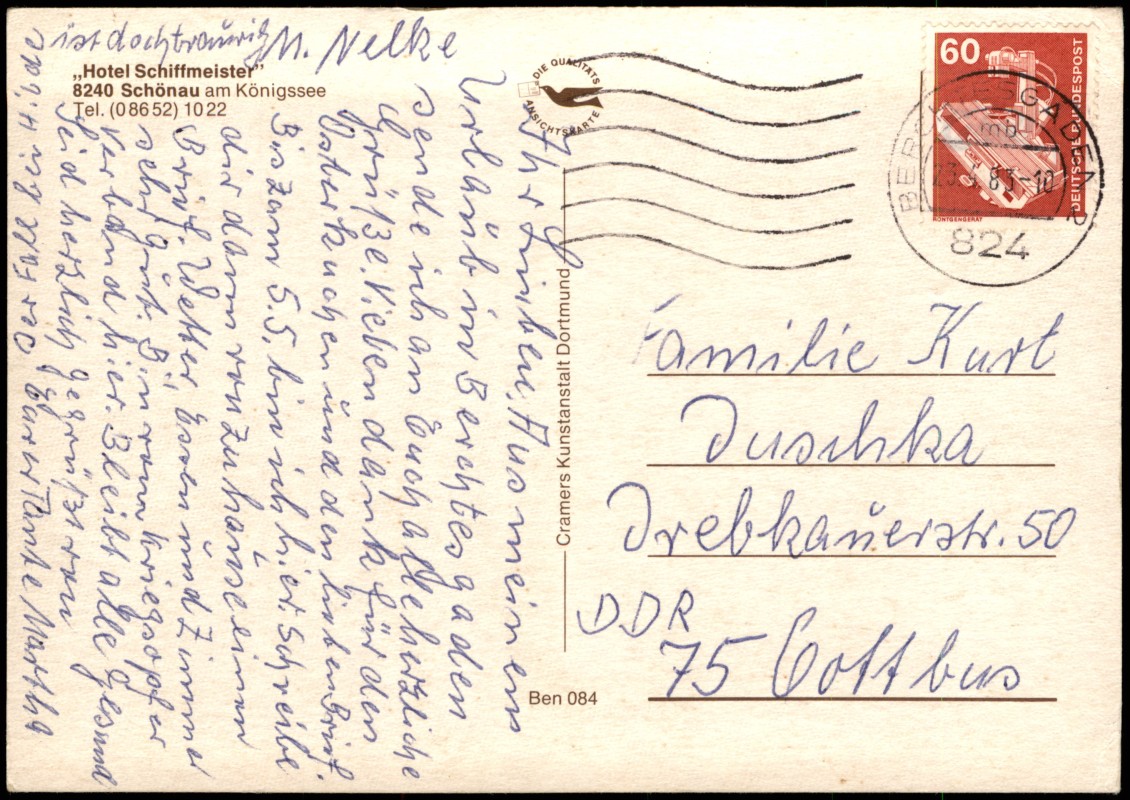 „Hotel Schiffmeister"
8240 Schönau am Königssee
Tel. (0 86 52) 10 22
DIE QUALITÄTS
ANSICHTSKARTE
60
DEUTSCHE BUNDESPOST
RÖNTGENGERÄT
BERCHTESGADEN
mb
83-10
824
Ihr Lieben, Aus meinem
Urlaub in Berchtesgaden
sende ich an Euch alle herzliche
Grüße. Vielen dank für den
Osterkuchen und den lieben Brief.
Bis zum 5.5. bin ich hier. Schreibe
dir dann von Zuhause einen
Brief. Wetter Essen und Zimmer
sehr gut. Bin vom kriegsopfer
verband hier. Bleibt alle gesund
Seid herzlich gegrüßt von
Eurer Tante Martha
M. Nelke
ist doch traurig
Cramers Kunstanstalt Dortmund
Ben 084
Familie Kurt
Duschka
Drebkauerstr. 50
DDR
75 Cottbus